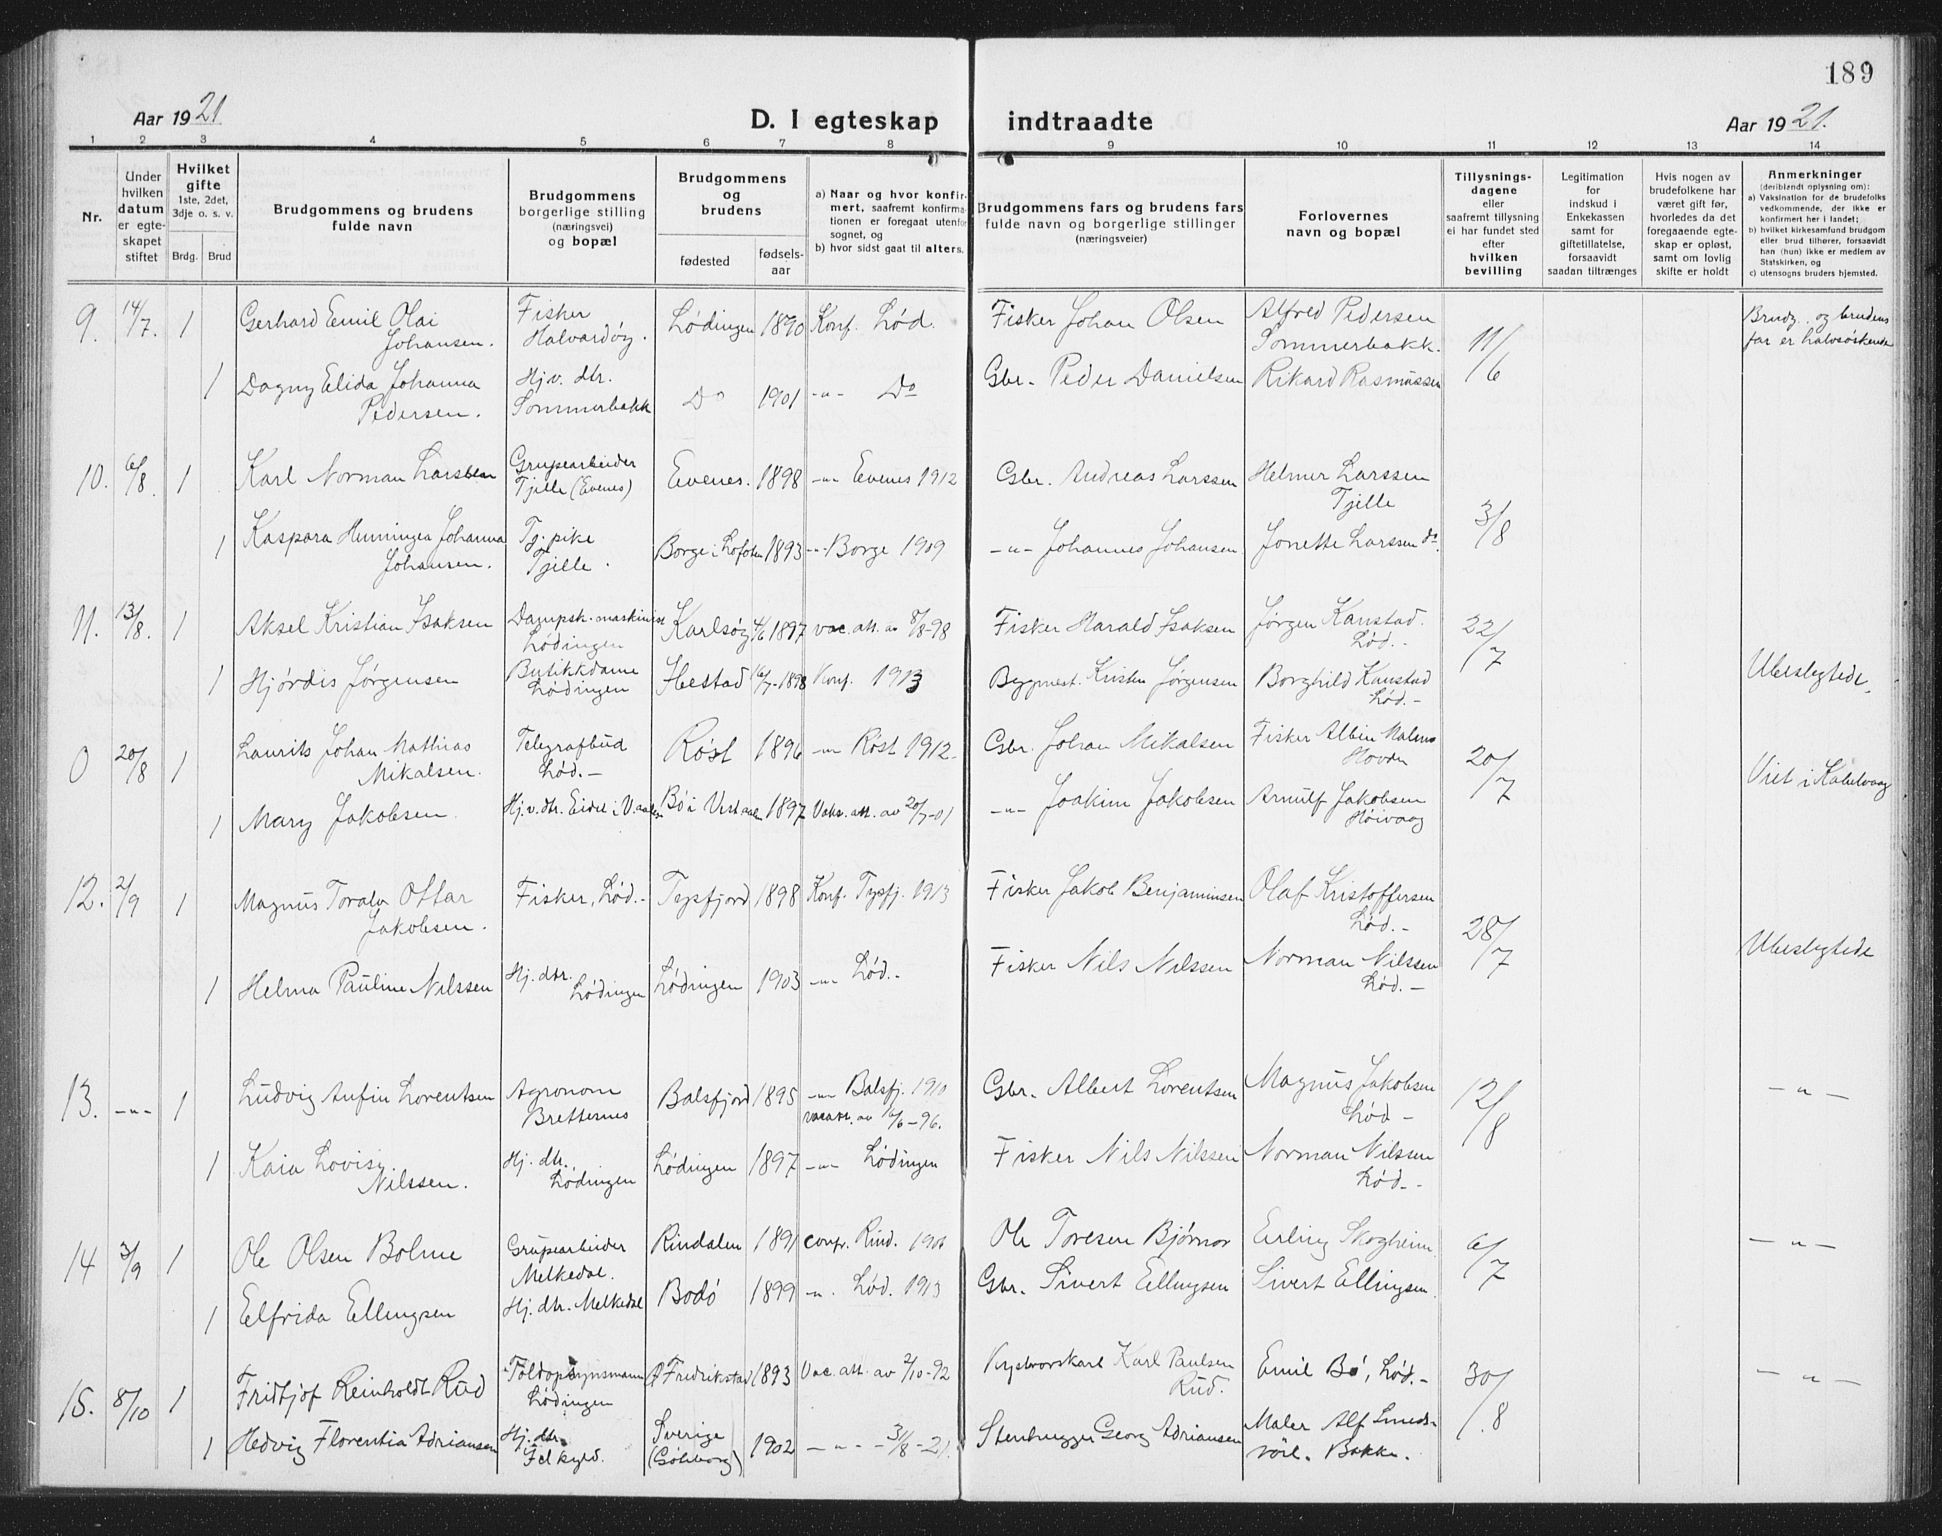 189
Aar 1921
D. I egteskap indtraadte
Aar 1921.
1 2 3 4 5 6 7 8 9 10 11 12 13 14
Nr.
Under hvilken datum er egteskapet stiftet
Hvilket gifte
1ste, 2det, 3dje o. s. v.
Brdg. Brud
Brudgommens og brudens fulde navn
Brudgommens borgerlige stilling (næringsvei) og bopæl
Brudgommens og brudens
fødested
fødselsaar
a) Naar og hvor konfirmert, saafremt konfirmationen er foregaat utenfor sognet, og
b) hvor sidst gaat til alters.
Brudgommens fars og brudens fars fulde navn og borgerlige stillinger (næringsveier)
Forlovernes navn og bopæl
Tillysningsdagene eller saafremt tillysning ei har fundet sted efter hvilken bevilling
Legitimation for indskud i Enkekassen samt for giftetillatelse, forsaavidt saadan tiltrænges
Hvis nogen av brudefolkene har været gift før, hvorledes da det foregaaende egteskap er opløst, samt om lovlig skifte er holdt
Anmerkninger
(deriblandt oplysning om):
a) Vaksination for de brudefolks vedkommende, der ikke er konfirmert her i landet;
b) hvilket kirkesamfund brudgom eller brud tilhører, forsaavidt han (hun) ikke er medlem av Statskirken, og
c) utensogns bruders hjemsted.
9. 14/7. 1 Gerhard Emil Olai Johansen. Fisker Halvardøy. Lödingen 1890 Konf. Löd. Fisker Johan Olsen Alfred Pedersen Sommerbakk. 11/6 Brudg. og brudens far er halvsøskende
1 Dagny Elida Johanna Pedersen. Hjv. dtr. Sommerbakk Do 1901 -"- Do Gbr. Peder Danielsen Rikard Rasmussen
10. 6/8. 1 Karl Norman Larssen Grupearbeider Tjelle (Evenes) Evenes. 1898 -"- Evenes 1912 Gbr. Andreas Larssen Helmer Larssen Tjelle 3/8
1 Kaspara Henningea Johanna Johansen. Tj. pike Tjelle. Borge i Lofoten 1893 -"- Borge 1909 -"- Johannes Johansen Jonette Larssen do.
11. 13/8. 1 Aksel Kristian Isaksen Dampsk. maskinist Lödingen Karlsöy 4/6 1897 vac. att. av 8/8-98 Fisker Harald Isaksen Jørgen Kanstad. Löd. 22/7
1 Hjördis Jørgensen Butikkdame Lödingen Hestad 16/7-1898 Konf. 1913 Bygmest. Kristen Jörgensen Borghild Kanstad Löd. Ubeslegtede.
0 20/8 1 Laurits Johan Mathias Mikalsen. Telegrafbud Löd. Röst 1896 -"- Röst 1912 Gbr. Johan Mikalsen Fisker Albin Hovden 20/7 Viet i Kabelvaag
1 Mary Jakobsen Hj. v. dtr. Eidet i V.aalen Bö i Vesteraalen 1897 Vaks. att. av 20/7-01 -"- Joakim Jakobsen Arnulf Jakobsen Höivaag
12. 2/9 1 Magnus Toralv Ottar Jakobsen. Fisker, Löd. Tysfjord 1898 Konf. Tysfj. 1913 Fisker Jakob Benjaminsen Olaf Kristoffersen Löd. 28/7 Ubeslegtede
1 Helma Pauline Nilssen Hj. dtr. Lödingen Lödingen 1903 -"- Löd. Fisker Nils Nilssen Norman Nilssen Löd.
13. -"- 1 Ludvig Anfin Lorentsen Agronom Bretternes Balsfjord 1895 -"- Balsfj. 1910 vacatt. av 16/6-96. Gbr. Albert Lorentsen Magnus Jakobsen Löd 12/8 -"-
1 Kaia Lovise Nilssen. Hj. dtr. Lödingen Lödingen 1897 -"- Lödingen Fisker Nils Nilssen Norman Nilssen Löd.
14 3/9 1 Ole Olsen Bolme Grupearbeider Melkedal. Rindalen 1891 confr. Rind. Ole Toresen Bjørnor Erling Skogheim. 6/7 -"-
1 Elfrida Ellingsen Hj. dtr. Melkedal Bodö 1899 -"- Löd. 1913 Gbr. Sivert Ellingsen Sivert Ellingsen.
15. 8/10 1 Fridtjof Reinholdt Rud Toldopsynsmann Lödingen Fredrikstad 1893 Vac. att. av 2/10-92 Karl Paulsen Rud. Emil Bö, Löd. 30/8 -"-
1 Hedvig Florentia Adriansen Hj. dtr. Sverige (Göteborg) 1902 -"- 3/8-21. Stenhugger Georg Adriansen Maler Alf Bakke.